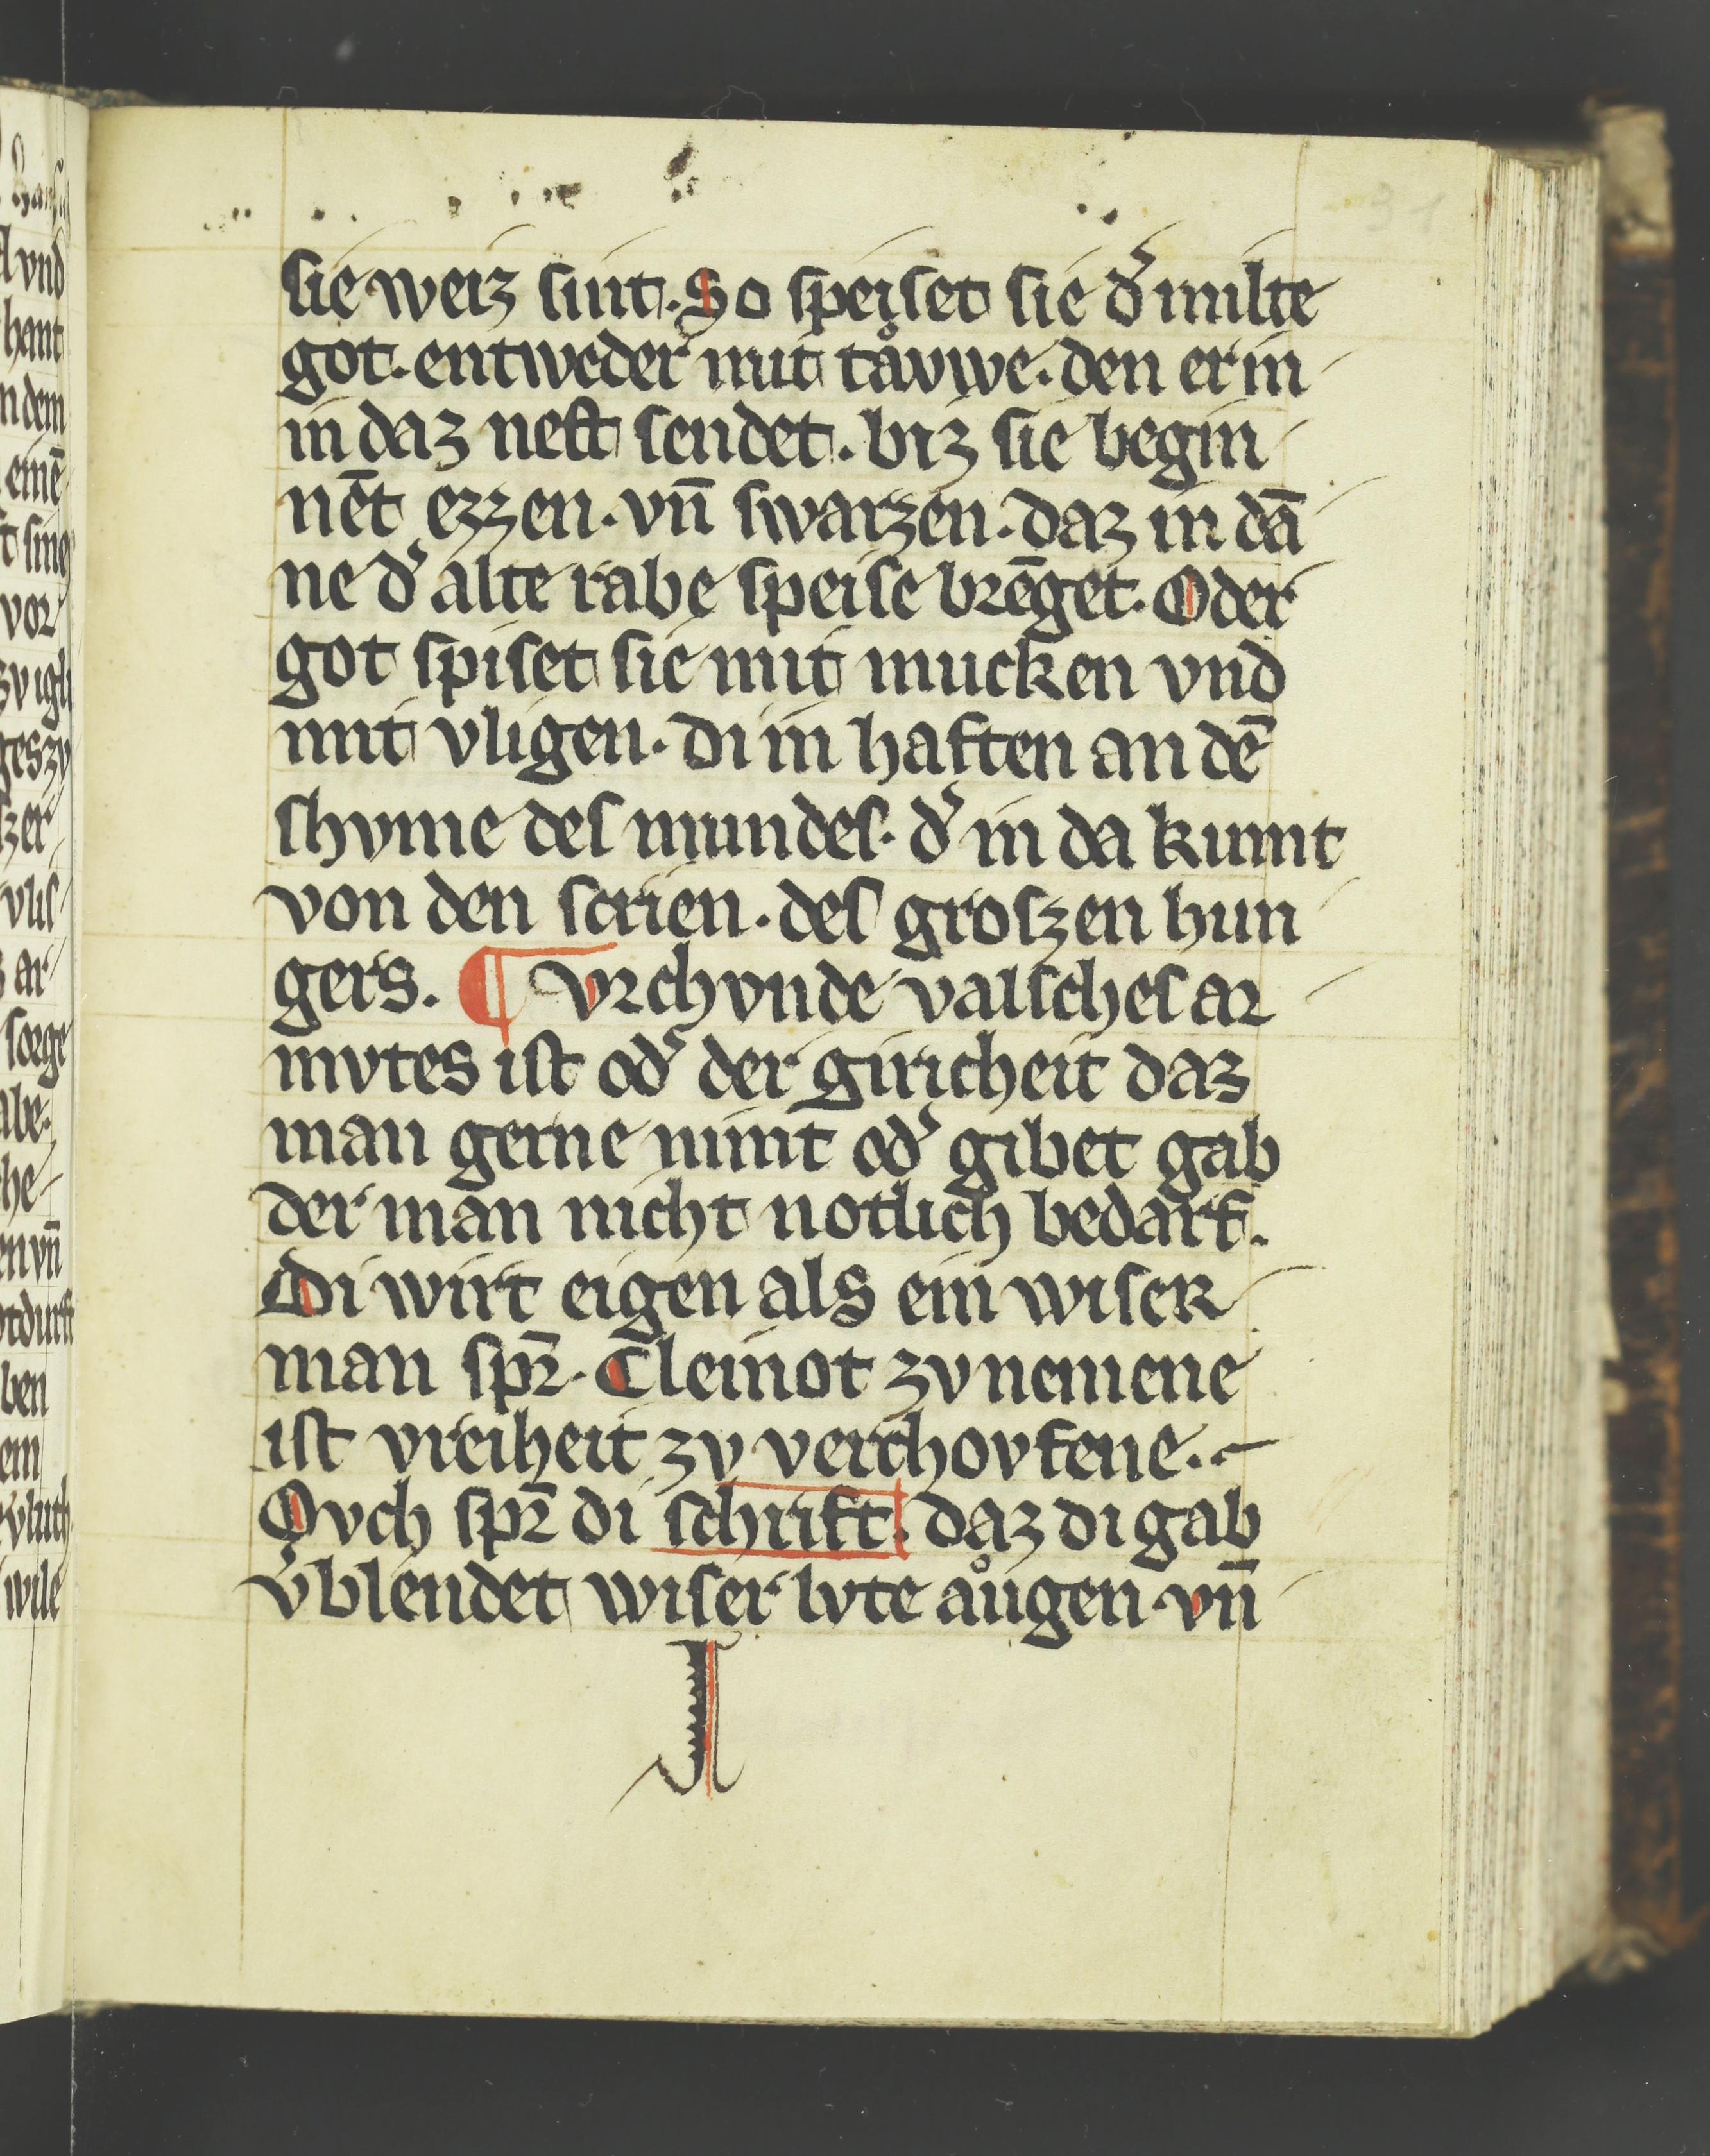 31
sie weiz sint. So speiset sie d͛ milte
got. entweder mit tåvwe. den er in
in daz nest sendet. biz sie begin
nēt ezzen. vn̄ swarzen. daz in dā
ne d͛ alte rabe speise brēget. Oder
got spiset sie mit mucken vnd
mit vligen. di in haften an dē
shvme des mundes. d͛ in da kumt
von den scrien. des groszen hun
gers. ¶ Vrchvnde valsches ar
mvtes ist od͛ der giricheit daz
man gerne nimt od͛ gibet gab
der man nicht notlich bedarf.
Di wirt eigen als ein wiser
man spr̄. Cleinot zv nemene
ist vreiheit zv verchovfene.
Ovch spr̄ di schrift. daz di gab
v͛blendet wiser lvte aůgen vn̄